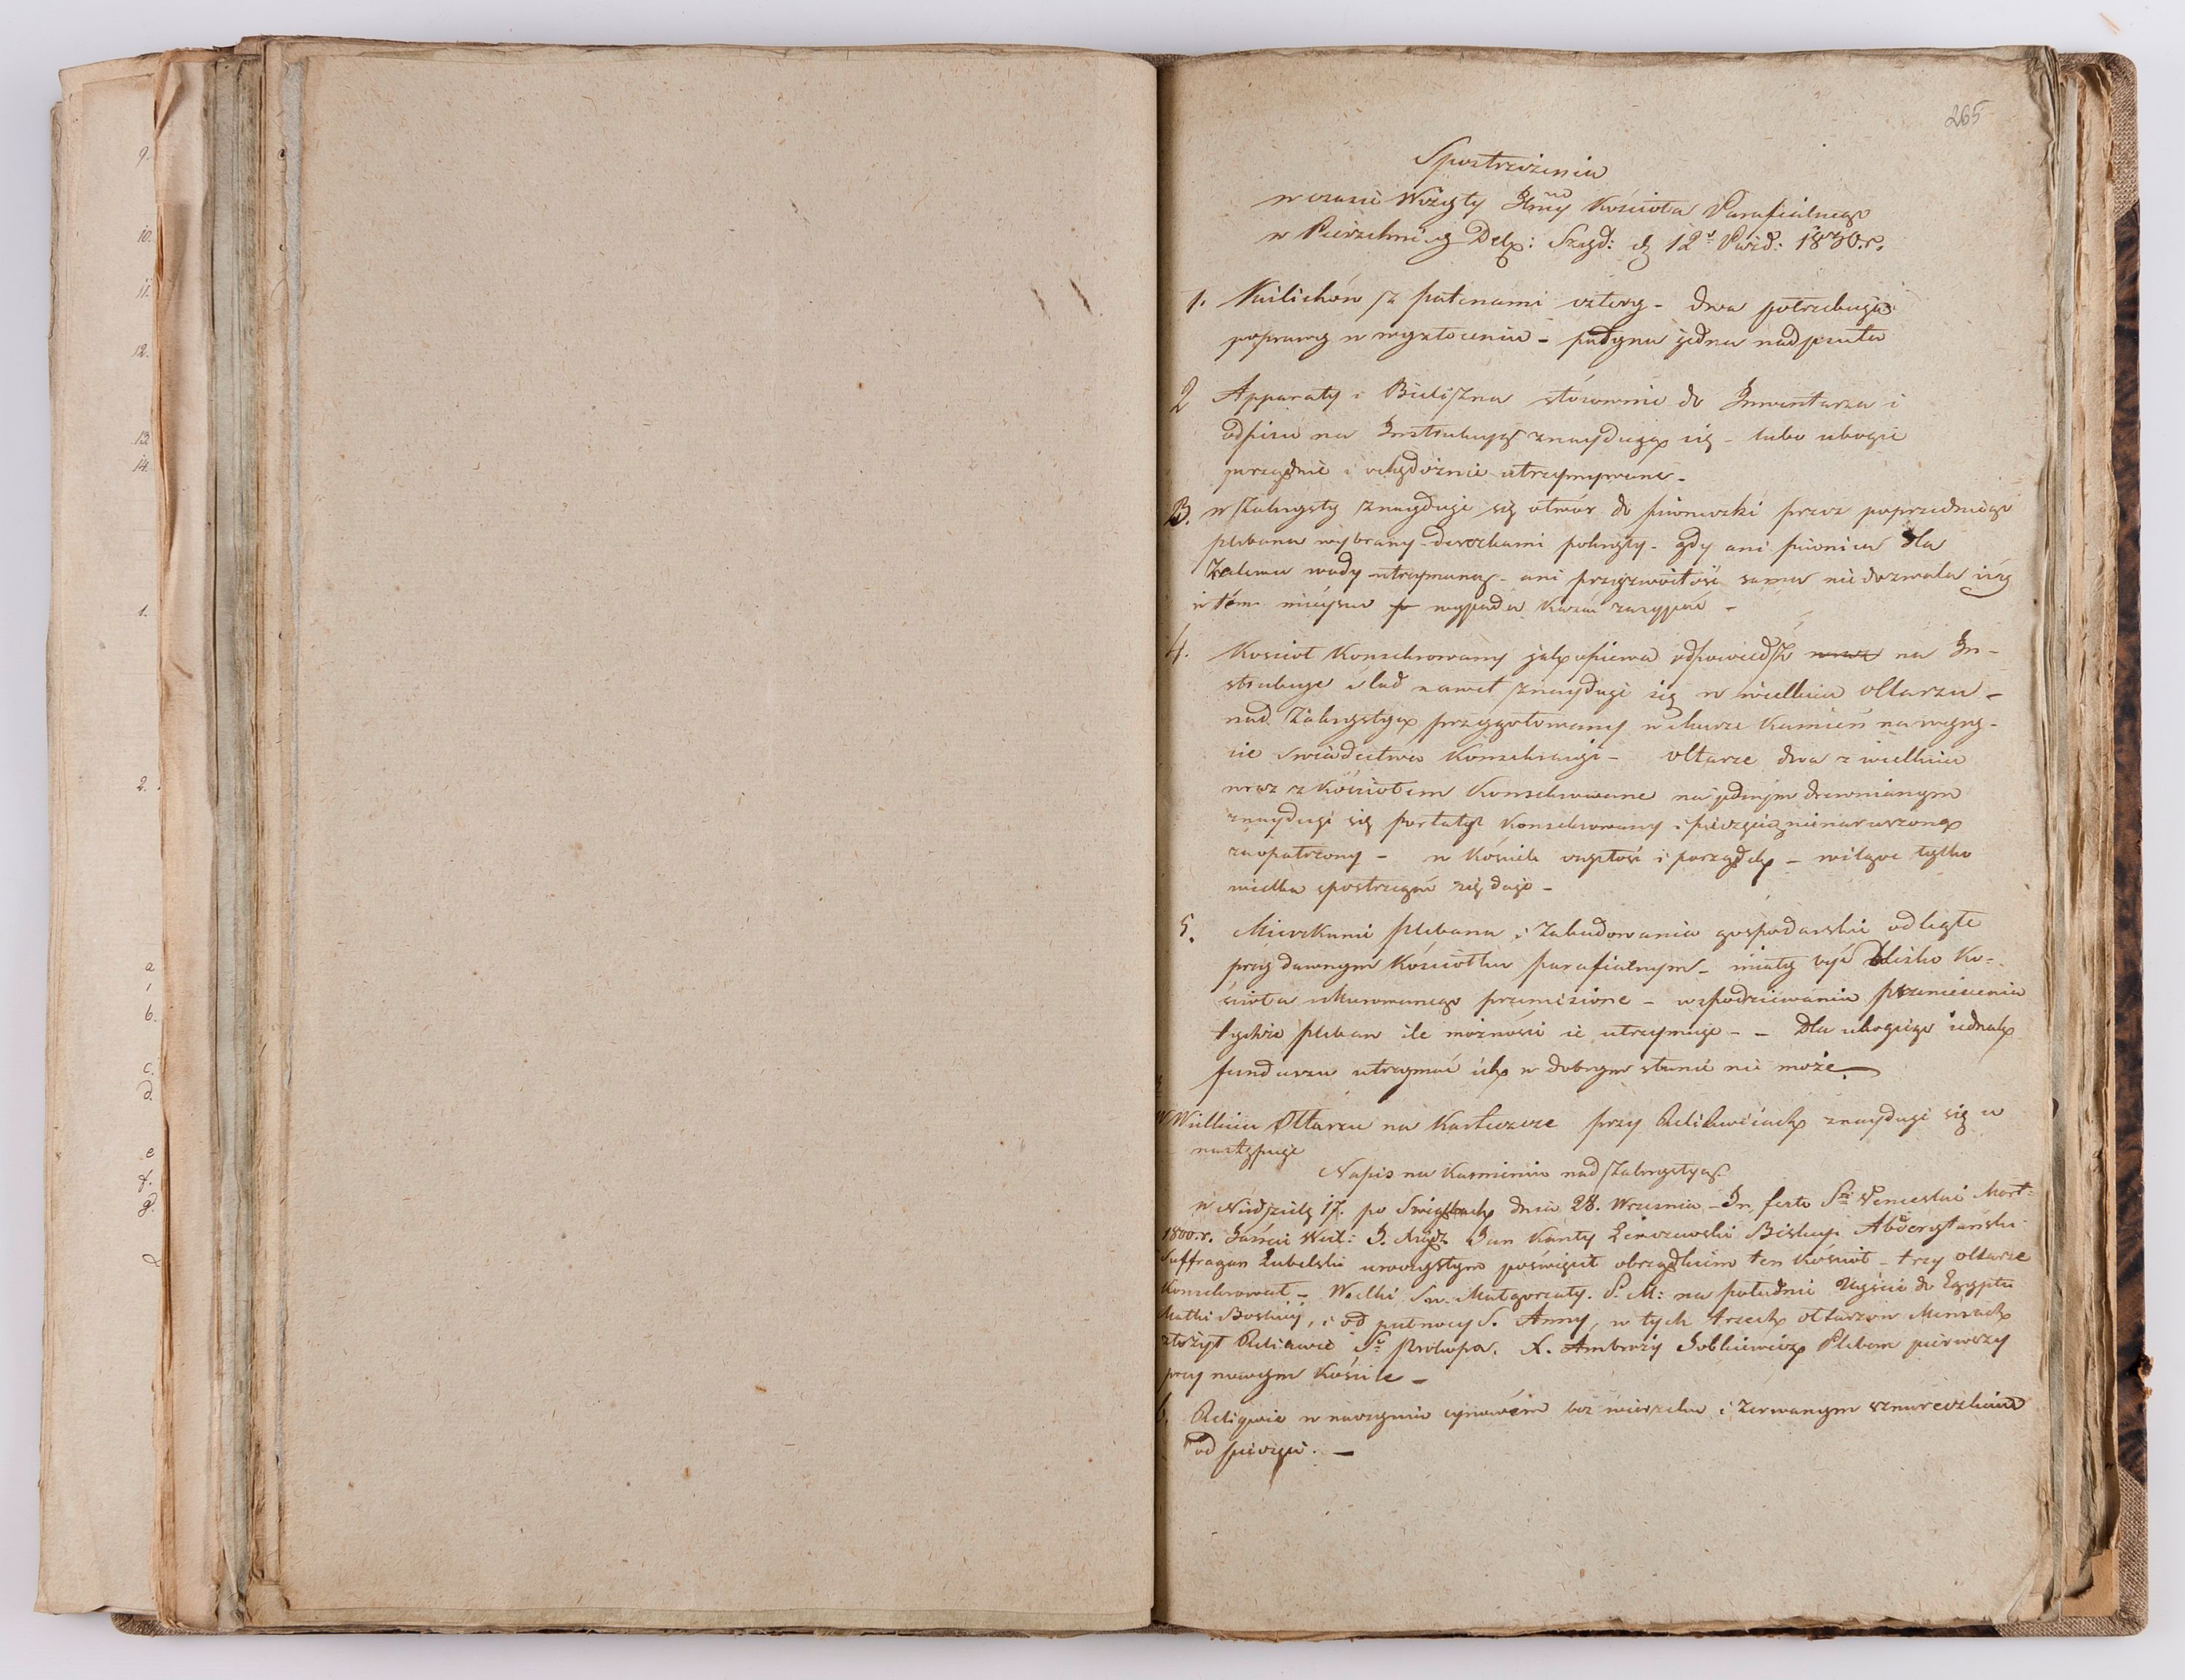 9.
10.
11.
12.
13
14.
1.
2.
a
b.
c.
d.
e
f.
g.
265
Spostrzeżenia
w czasie Wizyty Kościoła Parafialnego
w Pierzchnicy Szyd: 12 Paźd: 1830.r.
1. Kielichów z patenami cztery - dwa potrzebują
poprawy w wyzłoceniu - patyna jedna nadpsuta
2 Apparaty i Bielizna stósownie do Inwentarza i
odpisu na Instrukcyą znaydują się - lubo ubogie
porządnie i ochędożnie utrzymywane -
3. w Zakrysty znayduje się otwór do piwniczki przez poprzedniego
plebana wybrany - deszczkami pokryty - gdy ani piwnica dla
zalewu wody utrzymaną - ani przyzwoitość sama nie dozwala iey
w tém mieyscu wypada kazać zasypać -
4. Kosciół Konsekrowany jak opiewa odpowiedź na In-
strukcye ślad nawet znayduje się w wielkim ołtarzu -
nad Zakrystyą przygotowany w murze Kamień na wyry-
cie Swiadectwa Konsekracyi - ołtarze dwa z wielkim
wraz z Kościołem Konsekrowane na jednym drewnianym
znayduje się portatyl Konsekrowany i pieczęcią nienaruszoną
zaopatrzony - w Kościele czystość i porządek - wilgoć tylko
wielka spostrzegać się daje -
5. Mieszkanie plebana i Zabudowania gospodarskie odległe
przy dawnym Kościołku parafialnym - miały być blisko Ko-
ścioła murowanego przeniesione - w spodziewaniu przeniesienia
tychże pleban ile możności ie utrzymuje - - Dla ubogiego iednak
funduszu utrzymać ich w dobrym stanie nie może.
W Wielkim Ołtarzu na Karteczce przy Relikwiiach znayduje się co
następuje
Napis na Kamieniu nad Zakrystyą.
w Niedzielę 17. po Swiątkach dnia 28. Wrzesnia - In festo Sti Venceslai Mart:
1800.r. Jaśnie Wiel: J. Xiądz Jan Kanty Lenczewski Biskup Abderytański
Suffragan Lubelski uroczystym poświęcił obrządkiem ten Kościół - trzy ołtarze
Konsekrował - Wielki Sw. Małgorzaty. P. M: na południe Uyście do Egyptu
Matki Boskiéy, i od północy S. Anny, w tych trzech ołtarzów Mensach
złożył Relikwie Sgo Prokopa. X. Ambroży Pleban pierwszy
przy nowym Kościele -
6. Religwie w naczyniu cynowém bez wierzchu i zerwanym sznureczkiem
od pieczęci. -